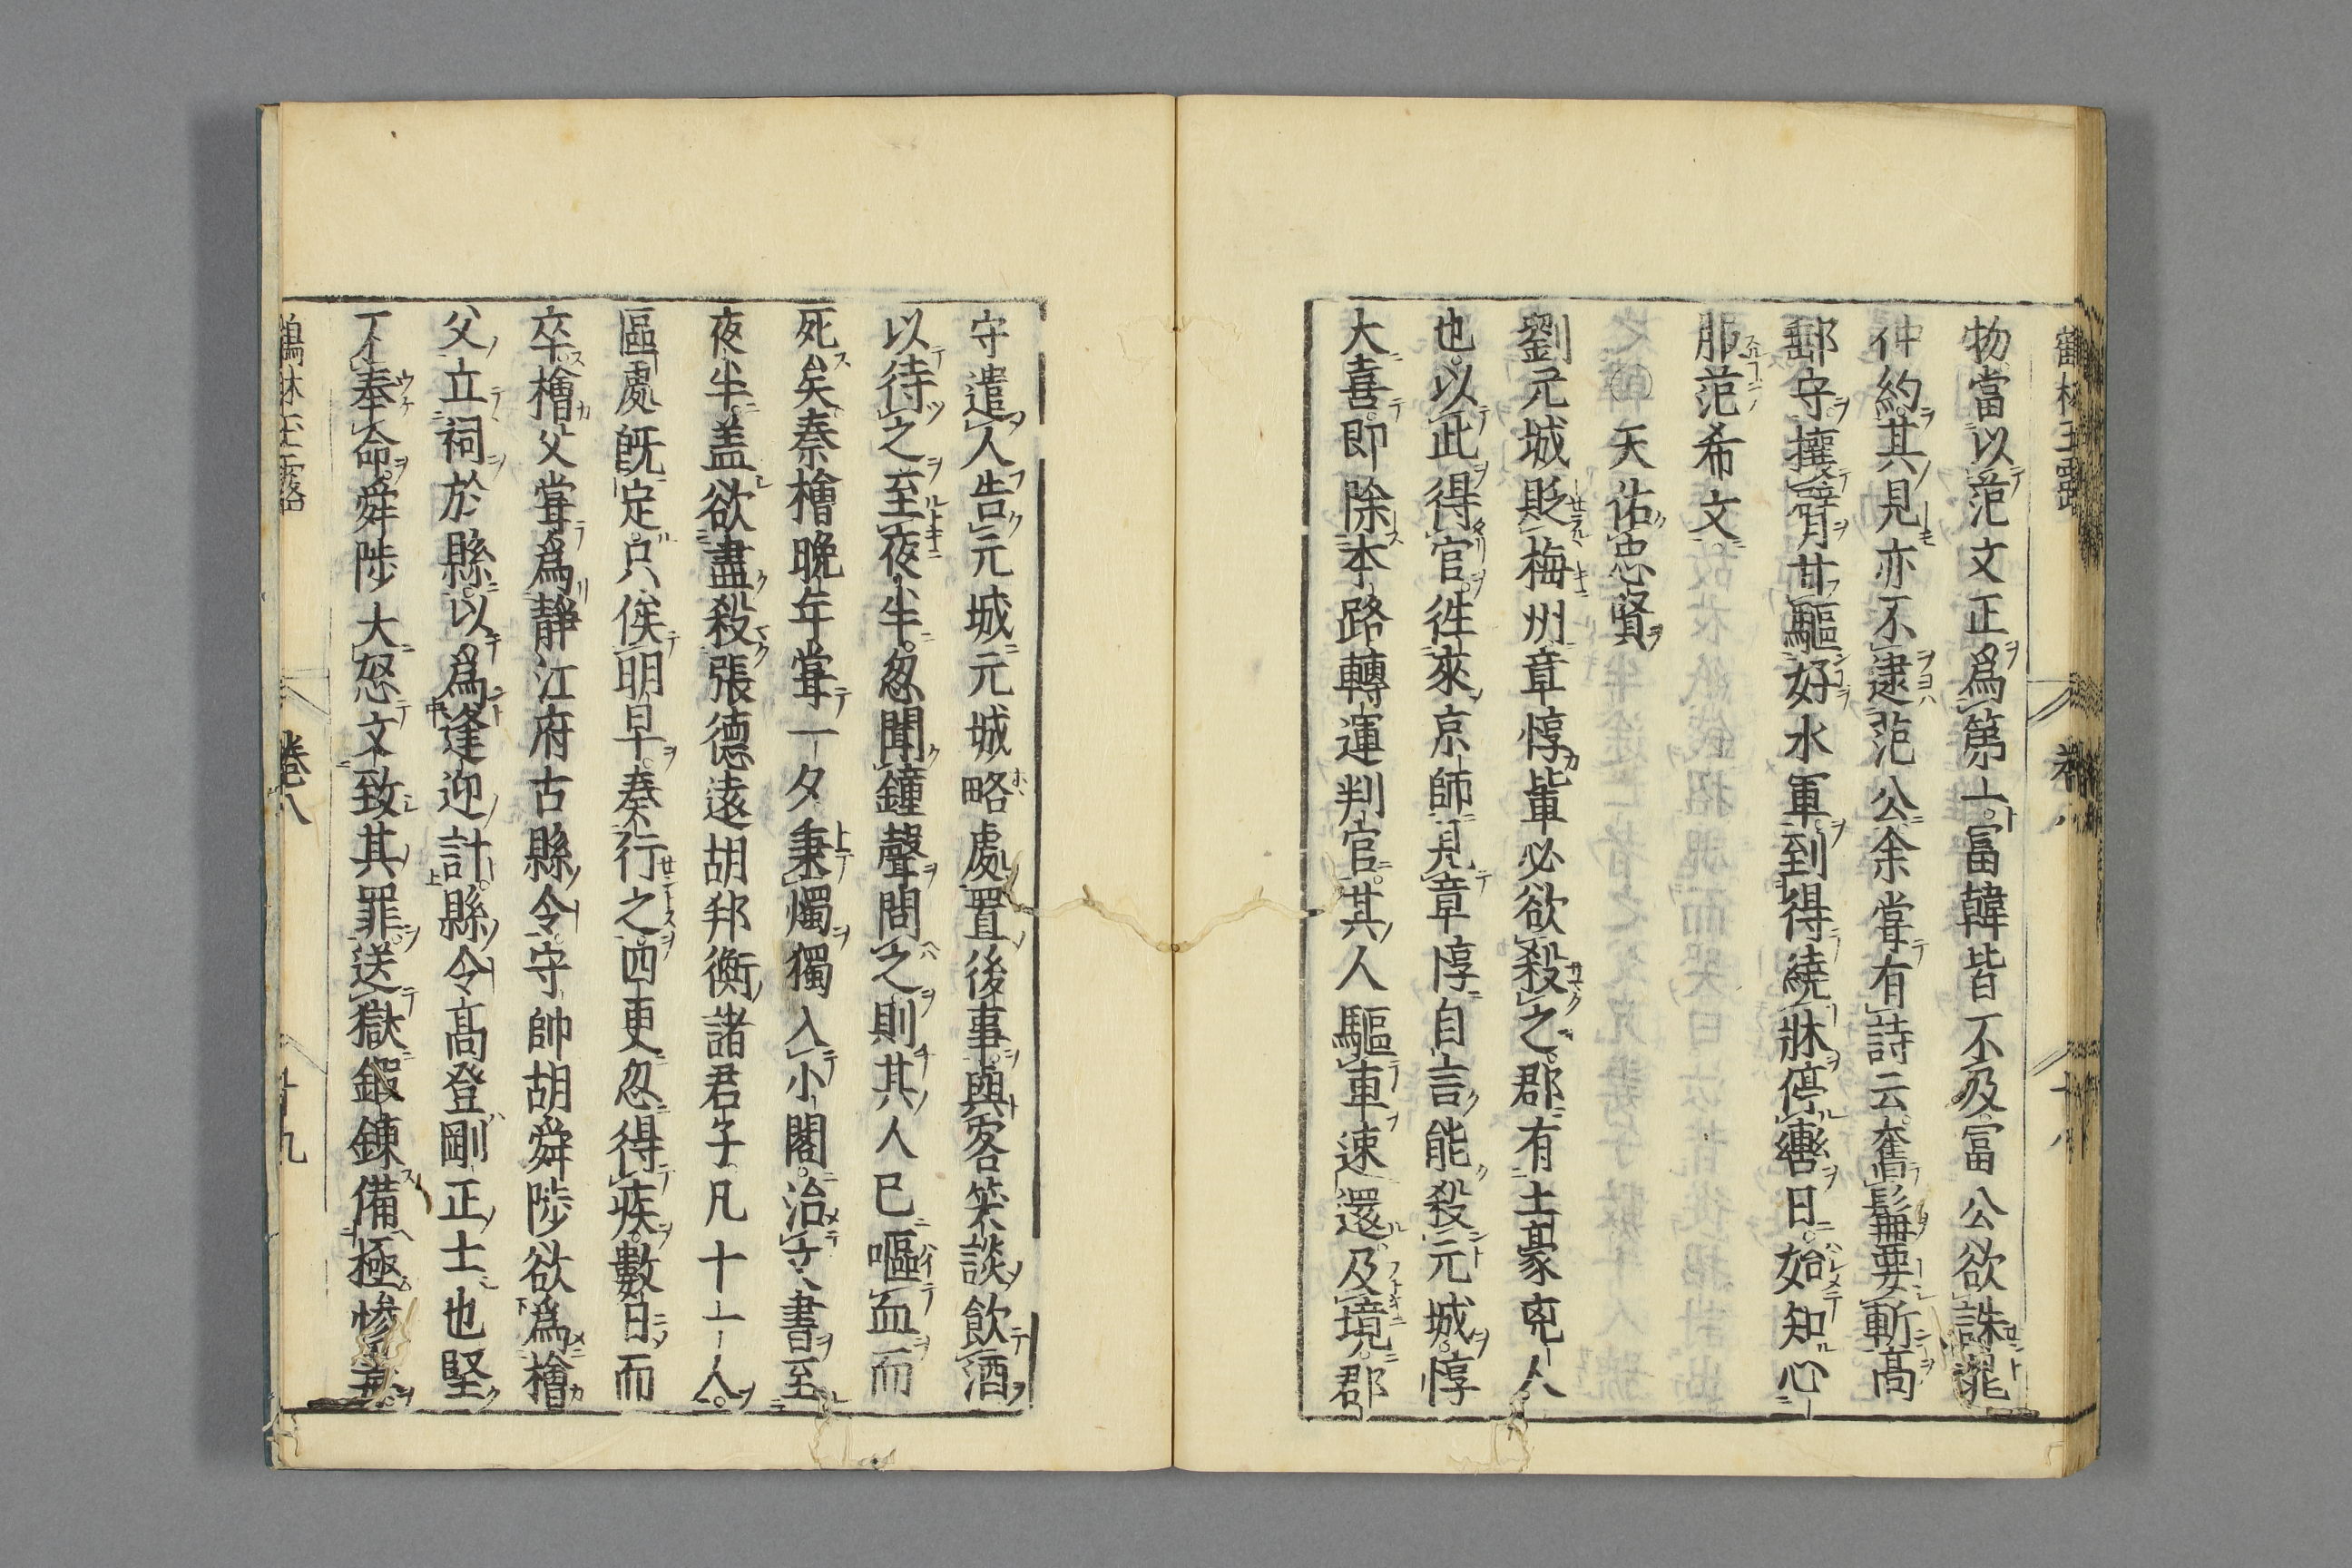 物當以范文正爲第一富韓皆不及富公欲誅晁
仲約其見亦不逮范公余甞有詩云奮髯要斬高
郵守攘臂甘驅好水軍到得繞牀停轡日始知心
服范希文
天佑忠賢
劉元城貶梅州章惇輩必欲殺之郡有土豪兇人
也以此得官徃來京師見章惇自言能殺元城惇
大喜即除本路轉運判官其人驅車速還及境郡
鶴林玉露 卷八 十八
守遣人告元城元城略處置後事與客笑談飲酒
以待之至夜半忽聞鐘聲問之則其人已嘔血而
死矣秦檜晚年甞一夕秉燭獨入小閣治文書至
夜半盖欲盡殺張德遠胡邦衡諸君子凡十一人
區處既定只俟明早奏行之四更忽得疾數日而
卒檜父甞爲靜江府古縣令守帥胡舜陟欲爲檜
父立祠於縣以爲逢迎計縣令高登剛正士也堅
不奉命舜陟大怒文致其罪送獄鍛錬備極惨毒
鶴林玉露 卷八 十九